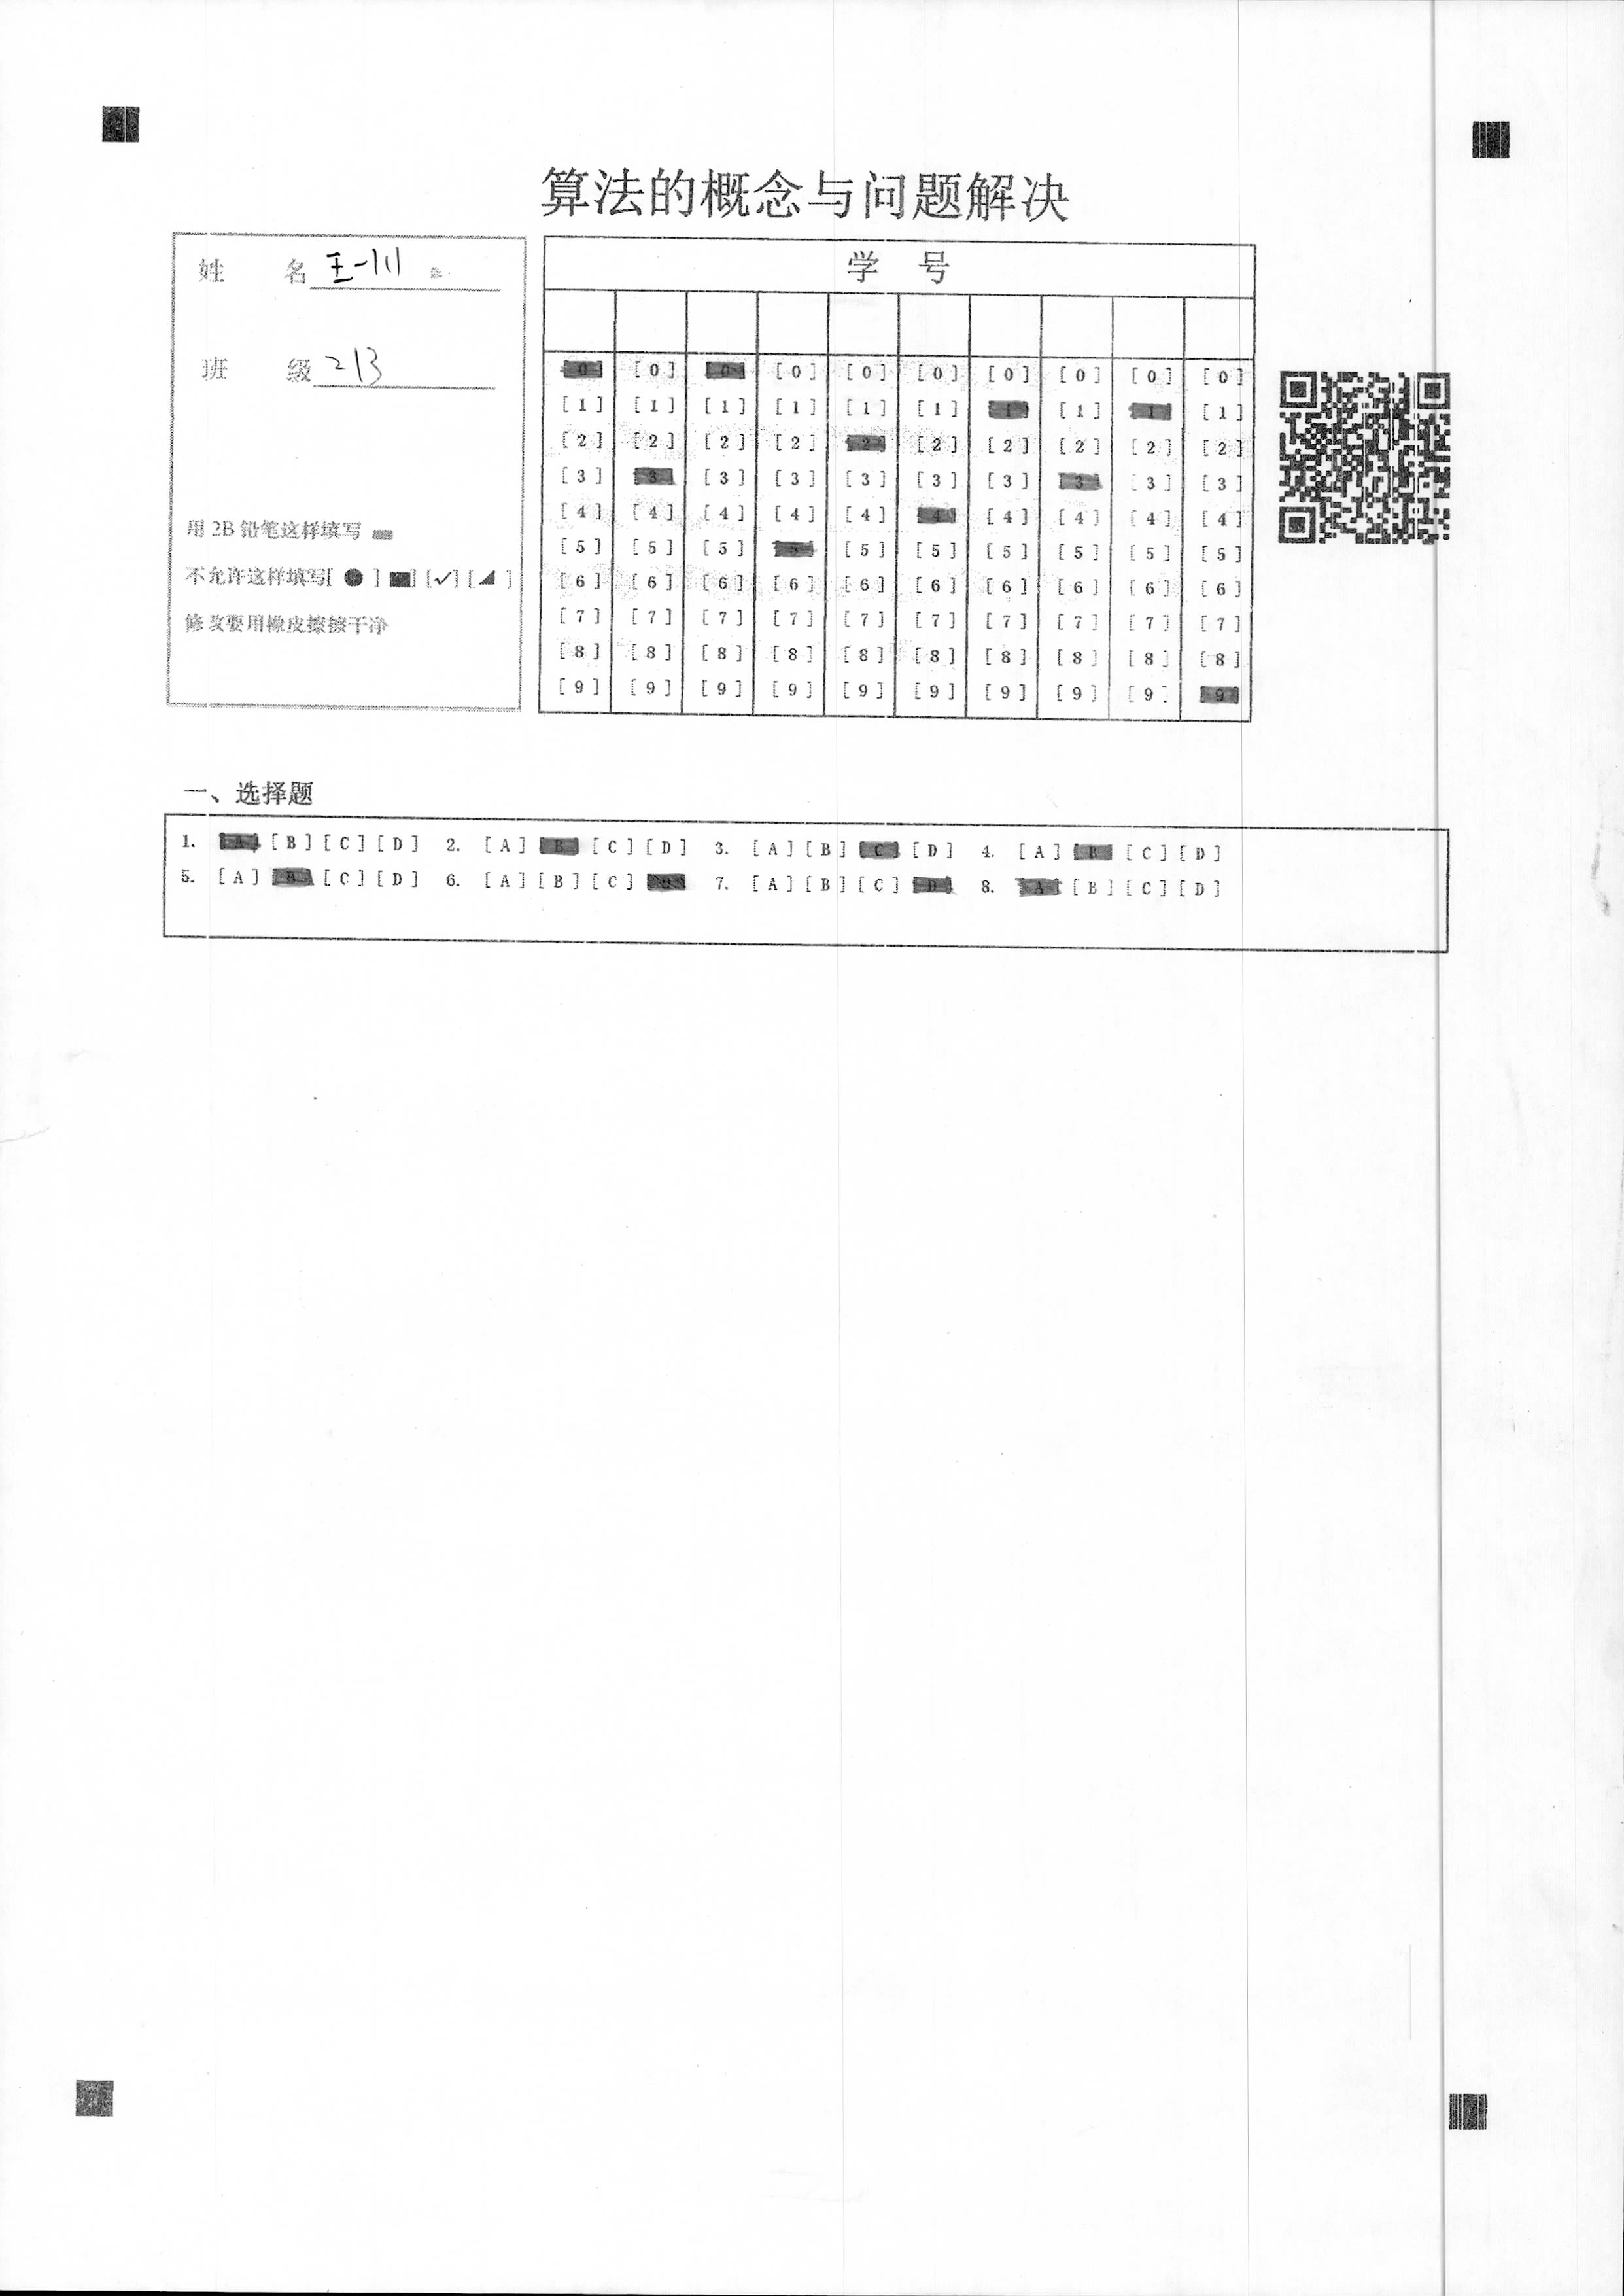 算法的概念与问题解决
姓 名 王一川
班 级 213
用2B铅笔这样填写
不允许这样填写[ ● ] [■] [✓] [◢ ]
修改要用橡皮擦擦干净
学 号
[0] [0] [0] [0] [0] [0] [0] [0] [0] [0]
[1] [1] [1] [1] [1] [1] [1] [1] [1] [1]
[2] [2] [2] [2] [2] [2] [2] [2] [2] [2]
[3] [3] [3] [3] [3] [3] [3] [3] [3] [3]
[4] [4] [4] [4] [4] [4] [4] [4] [4] [4]
[5] [5] [5] [5] [5] [5] [5] [5] [5] [5]
[6] [6] [6] [6] [6] [6] [6] [6] [6] [6]
[7] [7] [7] [7] [7] [7] [7] [7] [7] [7]
[8] [8] [8] [8] [8] [8] [8] [8] [8] [8]
[9] [9] [9] [9] [9] [9] [9] [9] [9] [9]
一、选择题
1. [A] [B] [C] [D] 2. [A] [B] [C] [D] 3. [A] [B] [C] [D] 4. [A] [B] [C] [D]
5. [A] [B] [C] [D] 6. [A] [B] [C] [D] 7. [A] [B] [C] [D] 8. [A] [B] [C] [D]